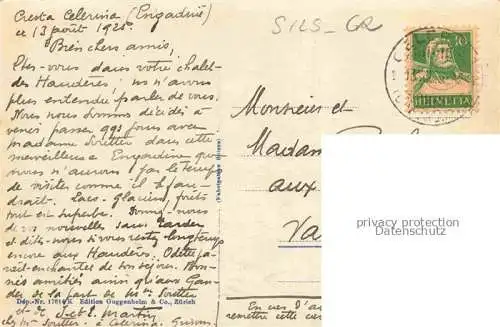 Cresta Celerina (Engadine)
ce 13 août 1925
Bien chers amis,
Etes-vous dans votre chalet
des Haudères ? ns n'avons
plus entendu parler de vous.
Nous nous sommes décidés à
venir passer qqs jours avec
madame Soutter dans cette
merveilleuse Engadine que
nous n'aurons pas le temps
de visiter comme il faudrait.
Lacs - Glaciers, forêts
tout est superbe. Donnez-nous
de vos nouvelles sans tarder
et dites-nous si vous restez longtemps
encore aux Haudères. Odette
enchantée de son séjour.
amitiés ainsi qu'aux
de la part de Mme Soutter
et E. Martin
chez Mme Soutter. à Celerina. Grisons
Dép.-Nr. K. Edition Guggenheim & Co., Zürich
(Fabrication Suisse)
SILS - GR
10
HELVETIA
Monsieur et
Madame
aux
Va
En cas d'
remettre cette
privacy protection
Datenschutz